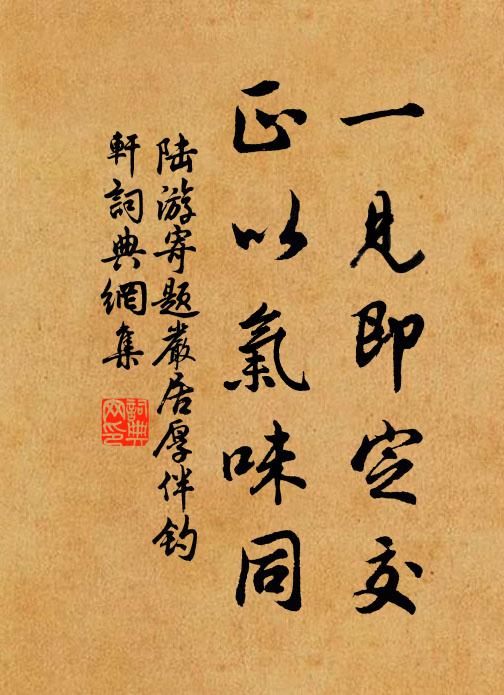 一見即定交
正以氣味同
陸游寄題嚴居厚伴釣
軒詞典網集
詞典網印